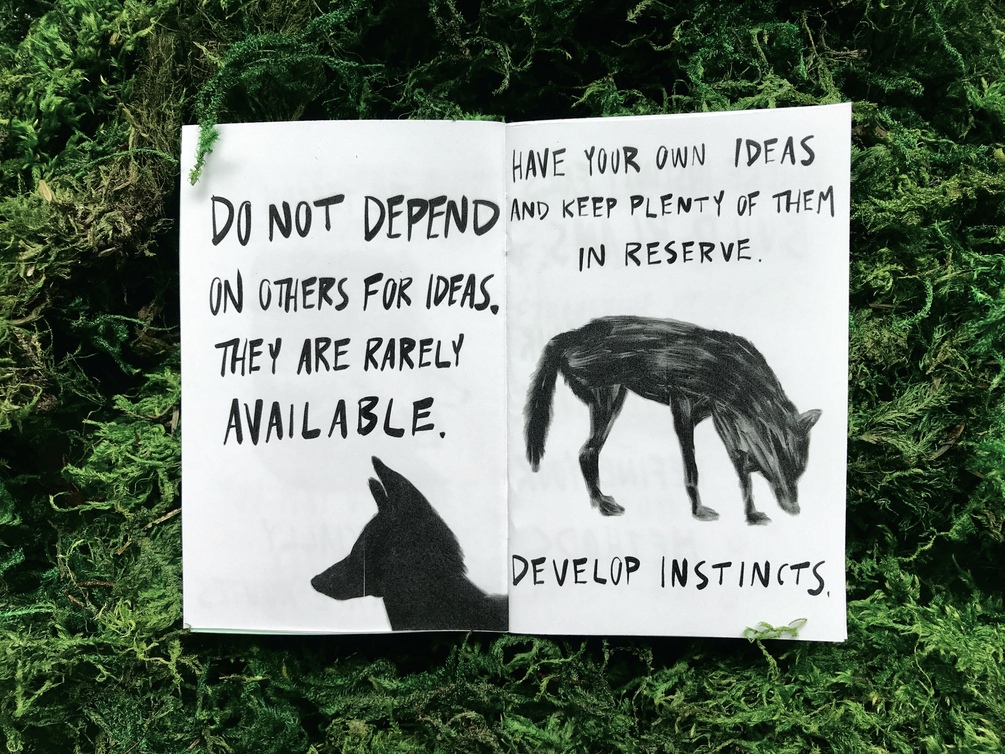 DO NOT DEPEND
ON OTHERS FOR IDEAS.
THEY ARE RARELY
AVAILABLE.
HAVE YOUR OWN IDEAS
AND KEEP PLENTY OF THEM
IN RESERVE.
DEVELOP INSTINCTS.